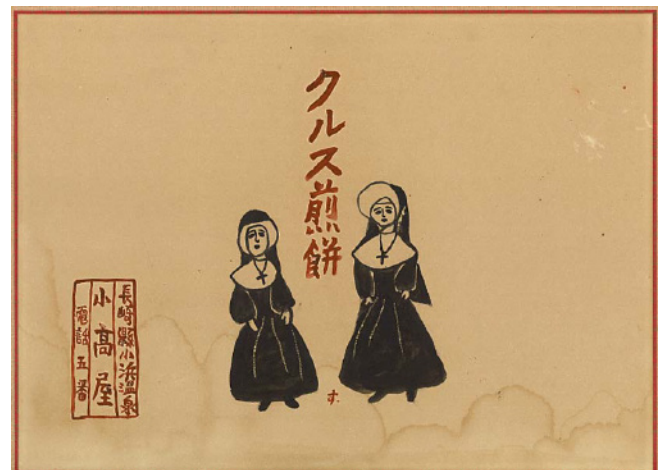 クルス煎餅
長崎縣小浜温泉
小髙屋
電話五番
す.